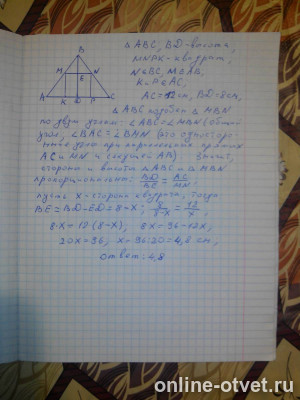 B
M N
E
A K D P C
△ABC, BD-высота,
MNPK-квадрат,
N∈BC, M∈AB,
K-P∈AC,
AC=12см, BD=8см,
△ABC подобен △MBN
по двум углам: ∠ABC=∠MBN (общий
угол), ∠BAC=∠BMN (это односторон-
ние углы при параллельных прямых
AC и MN и секущей AB) значит,
стороны и высоты △ABC и △MBN
пропорциональны: BD/BE = AC/MN
пусть x-сторона квадрата, тогда
BE=BD-ED=8-x; 8/8-x = 12/x;
8·x=12·(8-x); 8x=96-12x;
20x=96; x=96:20=4,8 см,
ответ: 4,8
online-otvet.ru